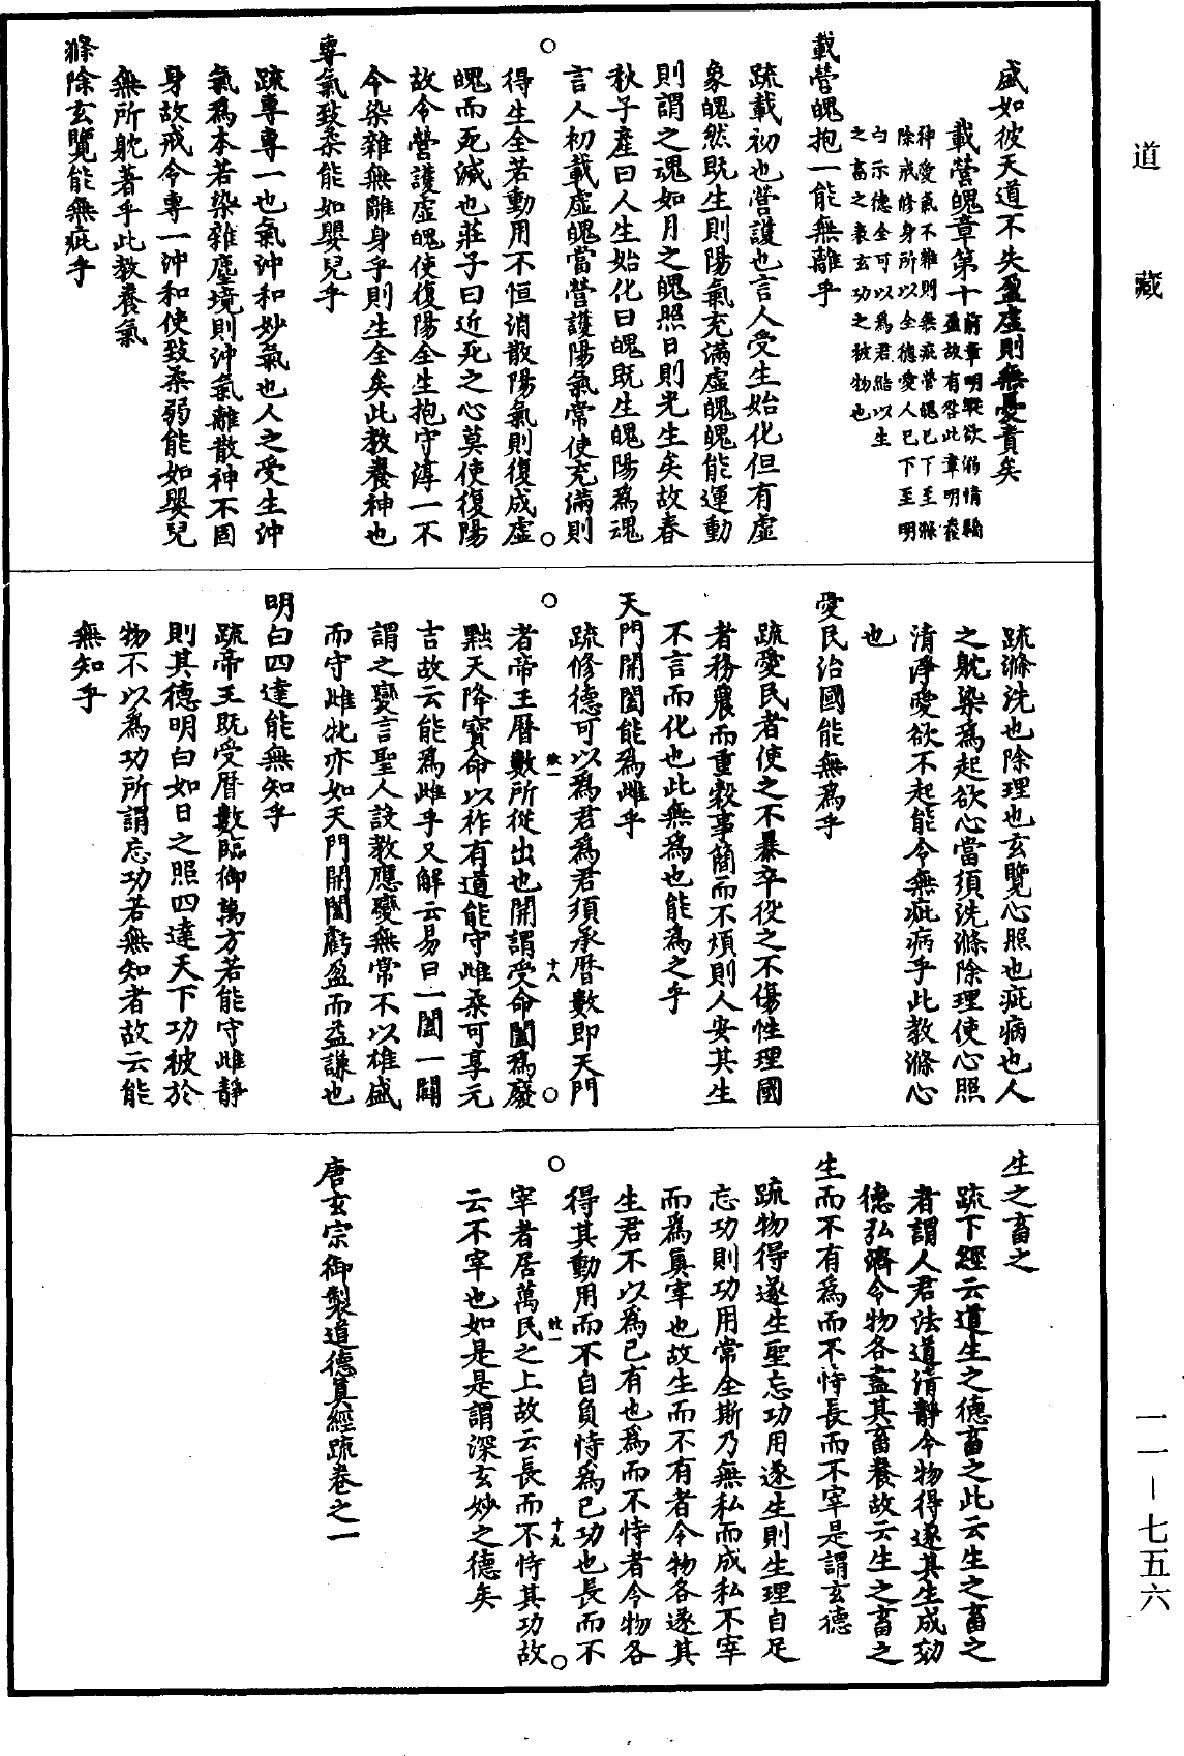 盛如彼天道不失盈虛則無憂責矣
載營魄章第十
前章明縱欲溺情驕
盈故有咎此章明養
神愛氣不雜則無疵營魄已下至滌
除戒修身所以全德愛人已下至明
白示德全可以爲君結以生
之畜之表玄功之被物也
載營魄抱一能無離乎
疏載初也營護也言人受生始化但有虛
象魄然既生則陽氣充滿虛魄魄能運動
則謂之魂如月之魄照日則光生矣故春
秋子產曰人生始化曰魄既生魄陽爲魂
言人初載虛魄當營護陽氣常使充滿則
得生全若動用不恒消散陽氣則復成虛
魄而死滅也莊子曰近死之心莫使復陽
故令營護虛魄使復陽全生抱守淳一不
令染雜無離身乎則生全矣此教養神也
專氣致柔能如嬰兒乎
疏專專一也氣沖和妙氣也人之受生沖
氣爲本若染雜塵境則沖氣離散神不固
身故戒令專一沖和使致柔弱能如嬰兒
無所躭著乎此教養氣
滌除玄覽能無疵乎
疏滌洗也除理也玄覽心照也疵病也人
之躭染爲起欲心當須洗滌除理使心照
清淨愛欲不起能令無疵病乎此教滌心
也
愛民治國能無爲乎
疏愛民者使之不暴卒役之不傷性理國
者務農而重穀事簡而不煩則人安其生
不言而化也此無爲也能爲之乎
天門開闔能爲雌乎
疏修德可以爲君爲君須承曆數即天門
效一
十八
者帝王曆數所從出也開謂受命闔爲廢
黜天降寶命以祚有道能守雌柔可享元
吉故云能爲雌乎又解云易曰一闔一闢
謂之變言聖人設教應變無常不以雄盛
而守雌牝亦如天門開闔虧盈而益謙也
明白四達能無知乎
疏帝王既受曆數臨御萬方若能守雌靜
則其德明白如日之照四達天下功被於
物不以爲功所謂忘功若無知者故云能
無知乎
生之畜之
疏下經云道生之德畜之此云生之畜之
者謂人君法道清靜令物得遂其生成効
德弘濟令物各盡其畜養故云生之畜之
生而不有爲而不恃長而不宰是謂玄德
疏物得遂生聖忘功用遂生則生理自足
忘功則功用常全斯乃無私而成私不宰
而爲真宰也故生而不有者令物各遂其
生君不以爲已有也爲而不恃者令物各
得其動用而不自負恃爲已功也長而不
效一
十九
宰者居萬民之上故云長而不恃其功故
云不宰也如是是謂深玄妙之德矣
唐玄宗御製道德真經疏卷之一
道　藏
一一－七五六